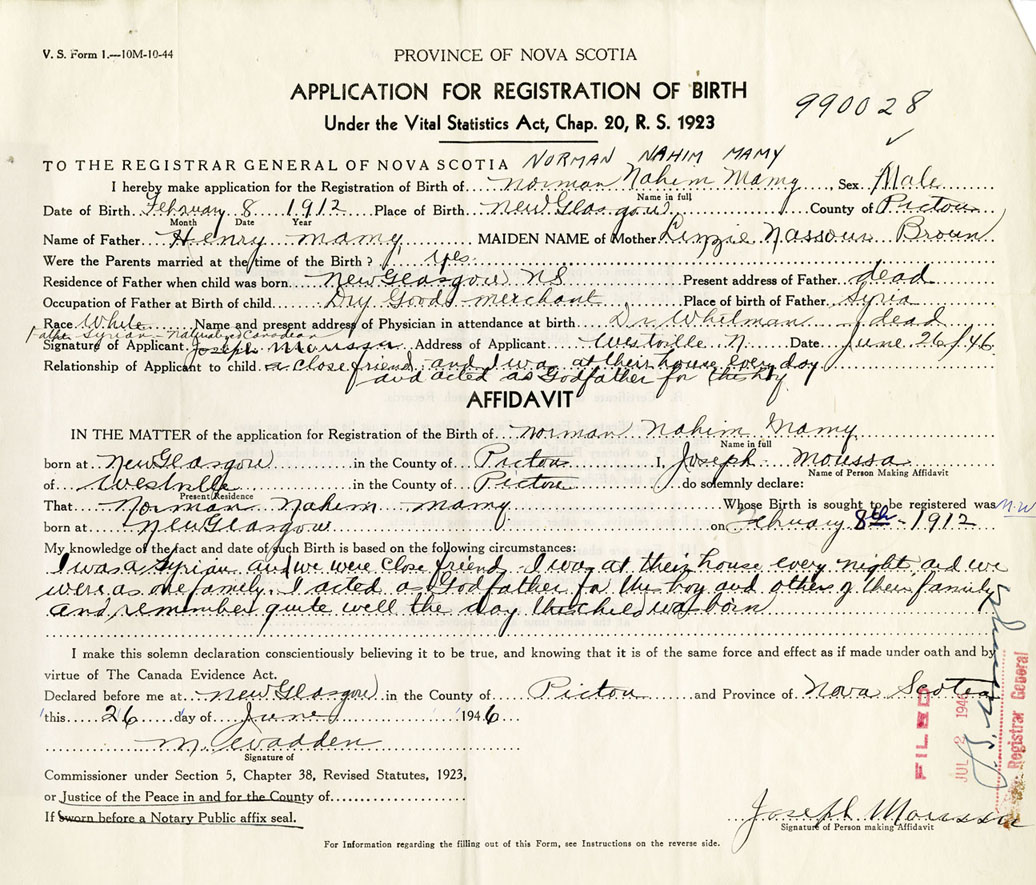 V. S. Form 1.—10M-10-44
PROVINCE OF NOVA SCOTIA
APPLICATION FOR REGISTRATION OF BIRTH
990028
Under the Vital Statistics Act, Chap. 20, R. S. 1923
TO THE REGISTRAR GENERAL OF NOVA SCOTIA NORMAN NAHIM MAMY
I hereby make application for the Registration of Birth of Norman Nahim Mamy, Sex Male
Name in full
Date of Birth February 8 1912 Place of Birth New Glasgow County of Pictou
Month Date Year
Name of Father Henry Mamy MAIDEN NAME of Mother Linzie Nassour Broun
Were the Parents married at the time of the Birth? yes
Residence of Father when child was born New Glasgow NS Present address of Father dead
Occupation of Father at Birth of child Dry Goods merchant Place of birth of Father Syria
Race White Name and present address of Physician in attendance at birth Dr Whitman dead
Father Syrian Naturalized Canadian
Signature of Applicant Joseph Moussa Address of Applicant Westville N. Date June 26/46
Relationship of Applicant to child a close friend and I was at their house every day
and acted as Godfather for the boy
AFFIDAVIT
IN THE MATTER of the application for Registration of the Birth of Norman Nahim Mamy
Name in full
born at New Glasgow in the County of Pictou I, Joseph Moussa
Name of Person Making Affidavit
of Westville in the County of Pictou do solemnly declare:
Present Residence
That Norman Nahim Mamy Whose Birth is sought to be registered was M.W
born at New Glasgow on February 8th - 1912
My knowledge of the fact and date of such Birth is based on the following circumstances:
I was a Syrian and we were close friend I was at their house every night and we
were as one family. I acted as Godfather for the boy and others of their family
and, remember quite well the day the child was born
I make this solemn declaration conscientiously believing it to be true, and knowing that it is of the same force and effect as if made under oath and by
virtue of The Canada Evidence Act.
Declared before me at New Glasgow in the County of Pictou and Province of Nova Scotia
this 26 day of June 1946
M. Wadden
Signature of
Commissioner under Section 5, Chapter 38, Revised Statutes, 1923,
or Justice of the Peace in and for the County of
If Sworn before a Notary Public affix seal.
Joseph Moussa
Signature of Person making Affidavit
For Information regarding the filling out of this Form, see Instructions on the reverse side.
FILED
JUL 2 1946
Registrar General